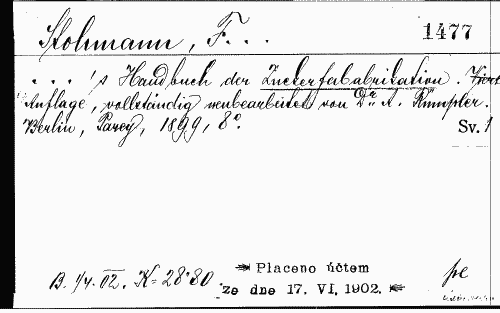 Stohmann, F. . .
1477
. . . 's Handbuch der Zuckerfabrikation.
Auflage, vollständig neubearbeitet von Dr. A. Rümpler.
Berlin, Parey, 1899, 8°.
Sv. 1
B. 1/4. 02. K= 28·80
Placeno účtem
ze dne 17. VI. 1902.